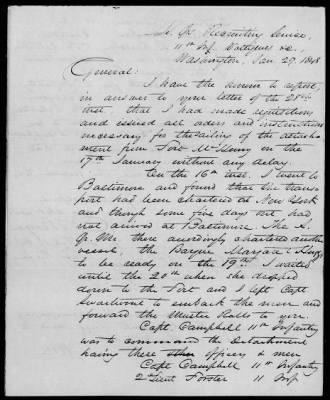 Hd. Qr. Recruiting Service,
11th Inf. Voltigeurs &c.,
Washington, Jan 29. 1848
General:
I have the honor to report,
in answer to your letter of the 28th
inst. that I had made requisitions
and issued all orders and instructions
necessary for the sailing of the detach-
ment from Fort McHenry on the
17th January without any delay.
On the 16th inst. I went to
Baltimore and found that the trans-
port had been chartered at New York
and though some five days out had
not arrived at Baltimore. The A.
Qr. Mr. there accordingly chartered another
vessel, the Barque Margaret
to be ready on the 19th. I waited
until the 20th when she dropped
down to the Fort and I left Capt
to embark the men and
forward the Muster Rolls to you.
Capt Campbell 11th Infantry
was to command the Detachment
having there other officers & men
Capt Campbell 11th Infantry
2nd Lieut Forster 11 Inf